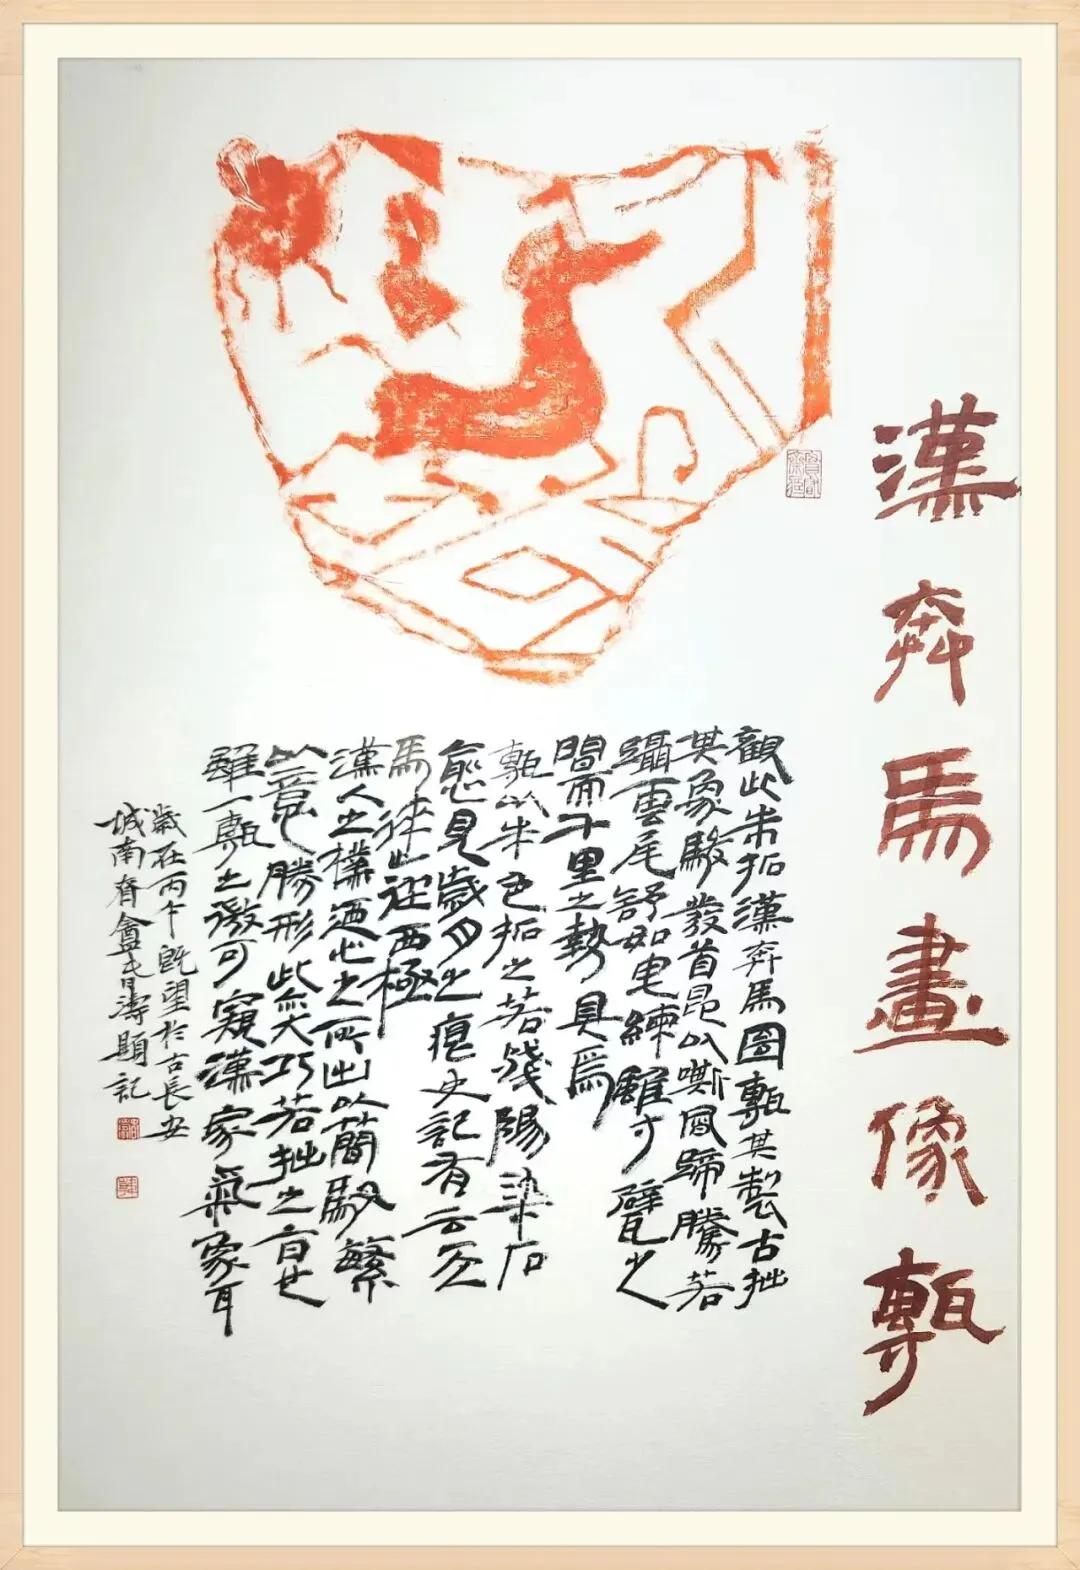 漢奔馬畫像甎
觀此朱拓漢奔馬圖甎其製古拙
其象駿發首昂以嘶風蹄騰若
躡雲尾舒如电練雖寸甓之
間而千里之勢具焉
甎以朱色拓之若殘陽染石
愈見歲月之痕史記有云天
馬徠西極
漢人之樸迺心之所出以簡馭繁
以意勝形此亦大巧若拙之旨也
雖一甎之微可窺漢家氣象耳
歲在丙午既望於古長安
城南盦濤題記